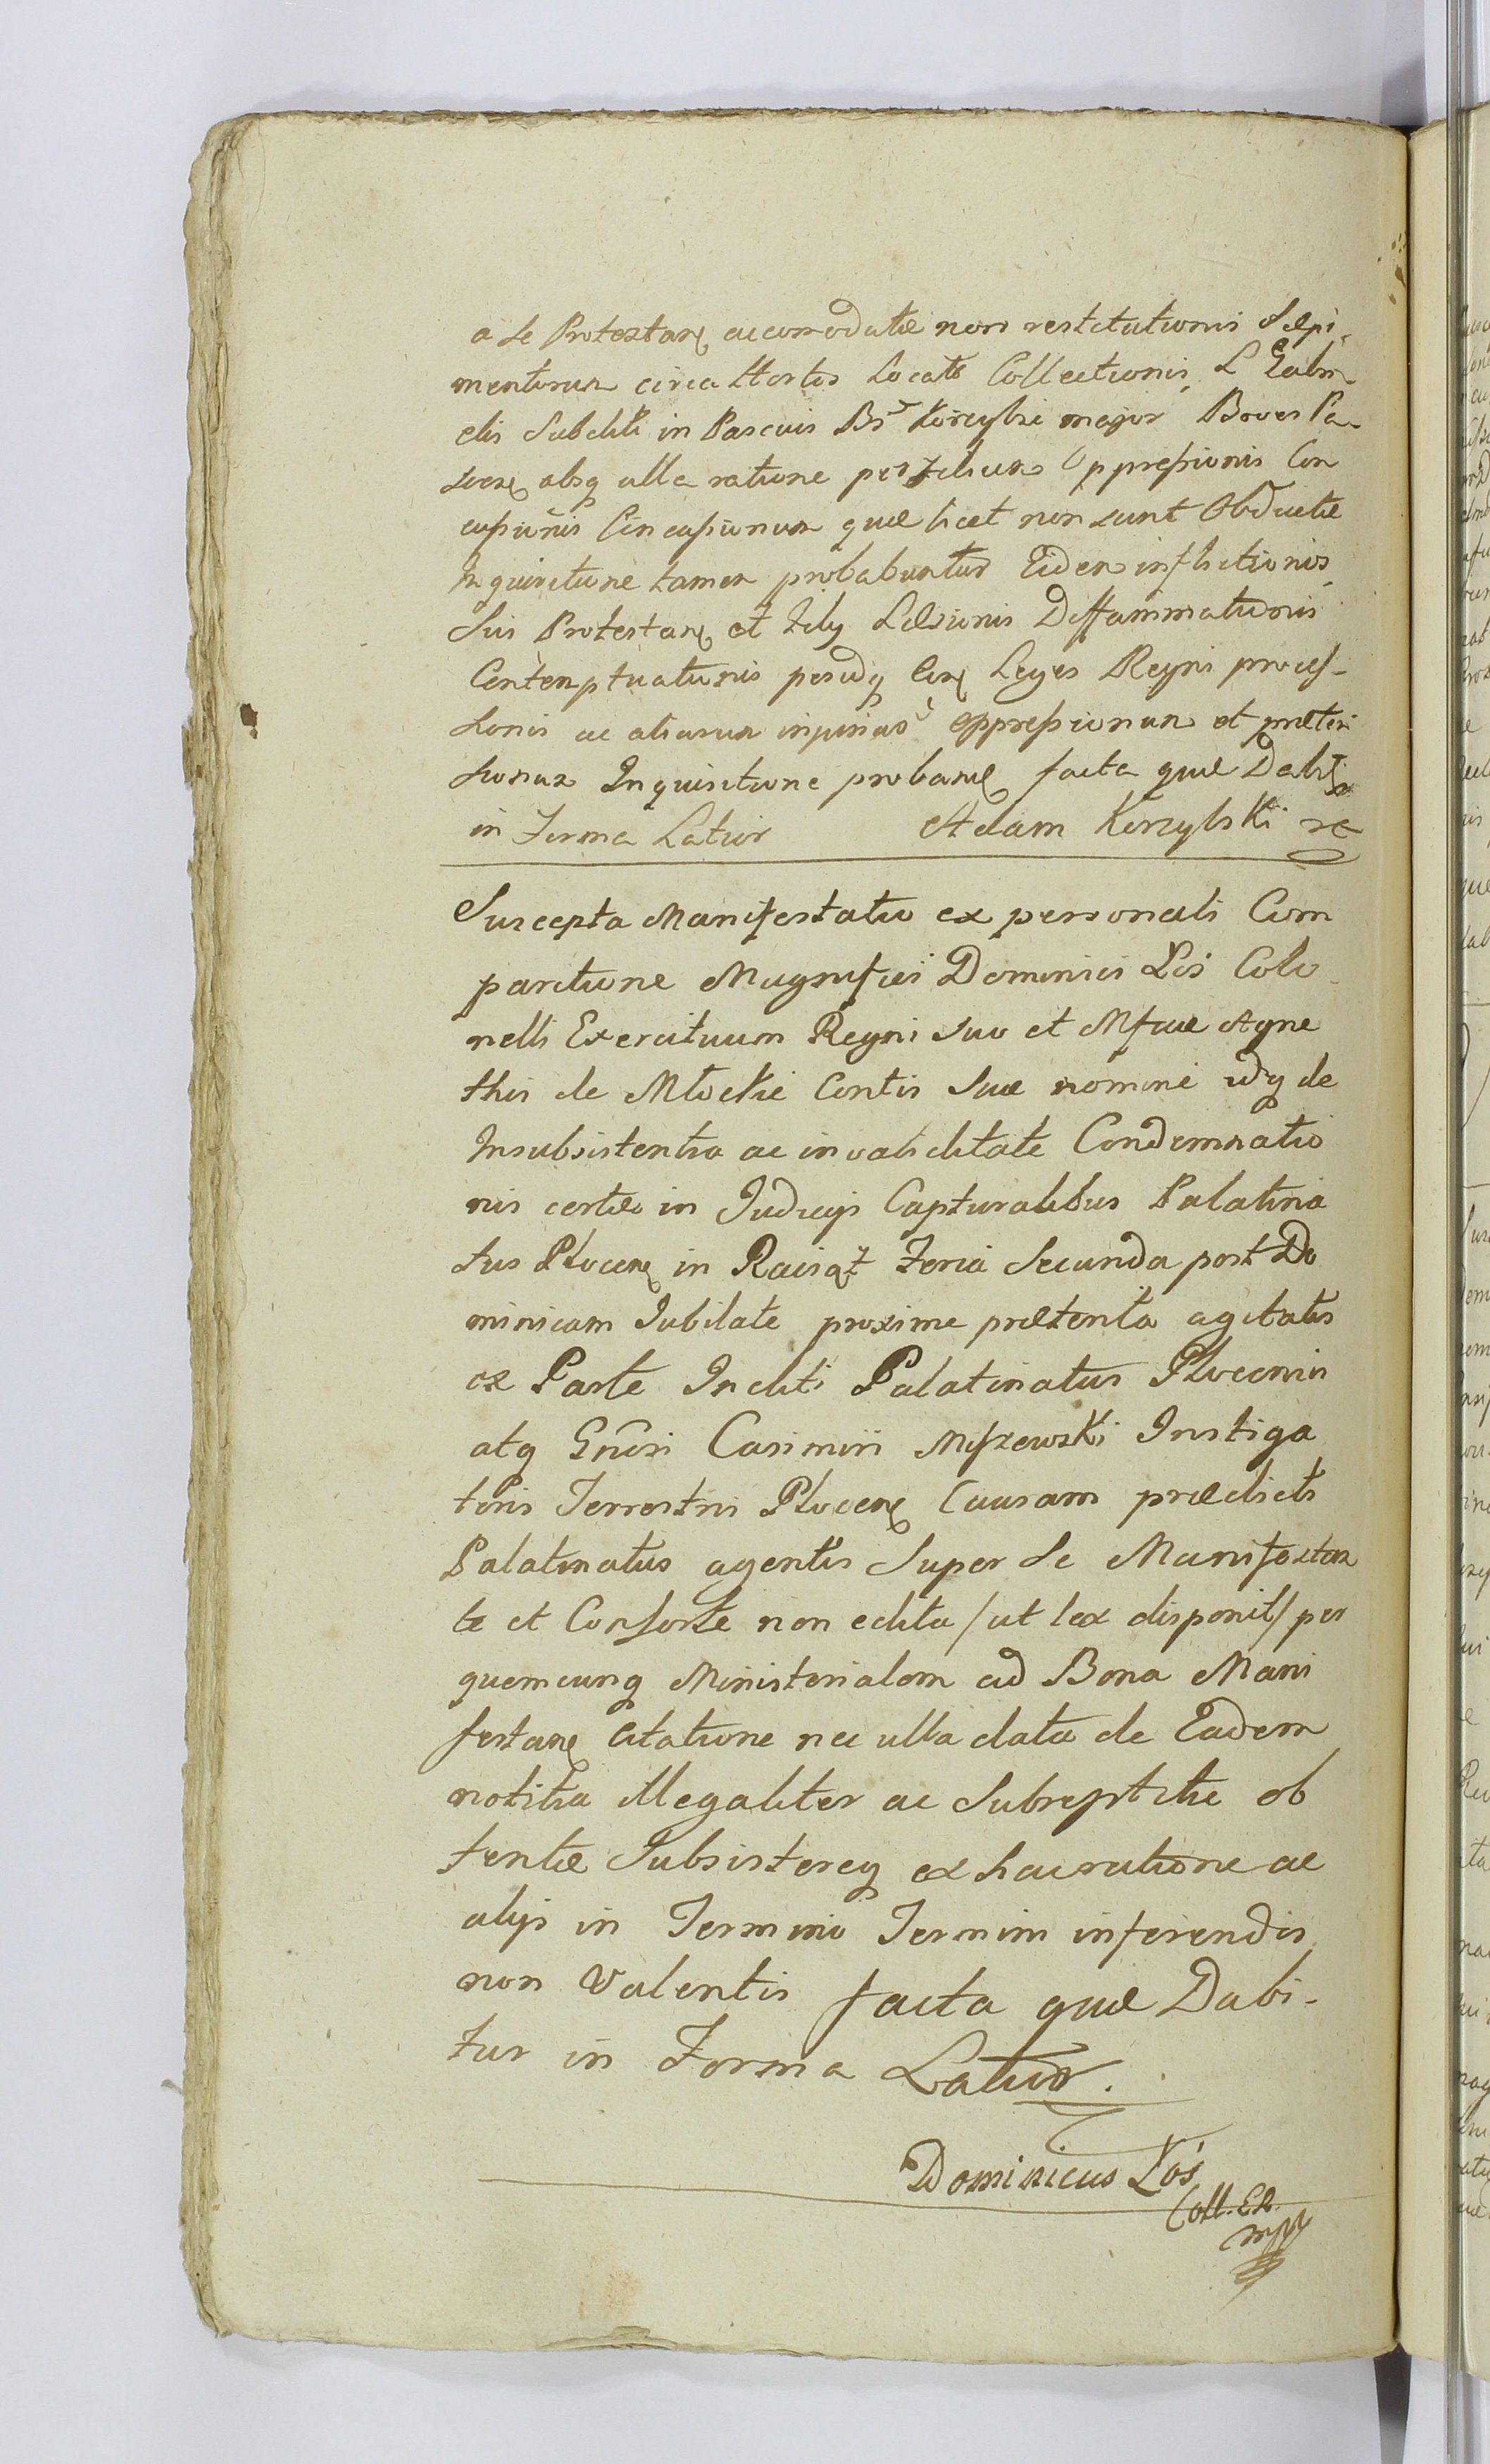 a se Protestan̄ accomodatæ non restitutionis Sæpi-
mentorum circa Hortos Locati Collectionis
elis Subditi in Pascuis Bs Korzybie major Boves Pa-
scen̄ absq ulla ratione per Oppressionis Con
cussionis Concussionum quæ licet non sunt Obductæ
Inquisitione tamen probabuntur Eidem inflictionis
Sui Protestan̄ et Læsionis Diffammationis
Contemptuationis peridq Leges Regni proces-
sionis ac aliarum injurias oppressionum et præten
sionum Inquisitione proban̄ facta quæ Dabitr
in Forma Latior Adam Korzybski
Suscepta Manifestatio ex personali Com
paritione Magnifici Dominici Łoś Colo
nelli Exercituum Regni suo et Mficæ Agne
this de Młockie Contis Suæ nomine idq de
Insubsistentia ac invaliditate Condemnatio
nis certæ in Judicijs Capturalibus Palatina
tus Plocen̄ in Raciąż Feria Secunda post Do
minicam Jubilate proxime prætenta agitatis
ex Parte Incliti Palatinatus Plocensis
atq Gn̄osi Casimiri Miszewski Instiga
toris Terrestris Plocen̄ Causam prædicti
Palatinatus agentis Super Se Manifestan
te et Consorte non edita /ut lex disponit/ per
quemcunq Ministerialem ad Bona Mani
festan̄ Citatione nec ulla data de Eadem
notitia illegaliter ac Subreptitie ob
tentæ Subsistereq ex hac ratione ac
alijs in Termino Termini inferendis
non Valentis facta quæ Dabi-
tur in Forma Latior.
Dominicus Łoś
Coll. Er.
mpp